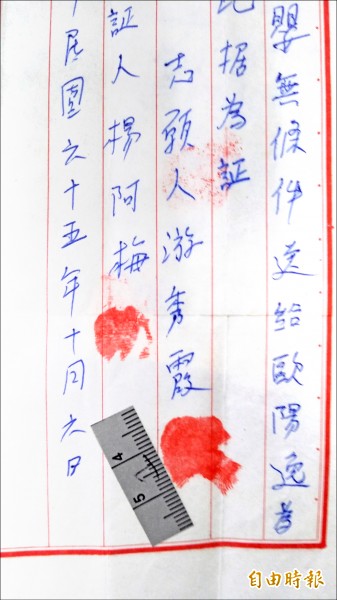 嬰無條件送給歐陽逸者
此据為証
志願人游秀霞
証人楊阿梅
民國六十五年十月六日
4
5
自由時報